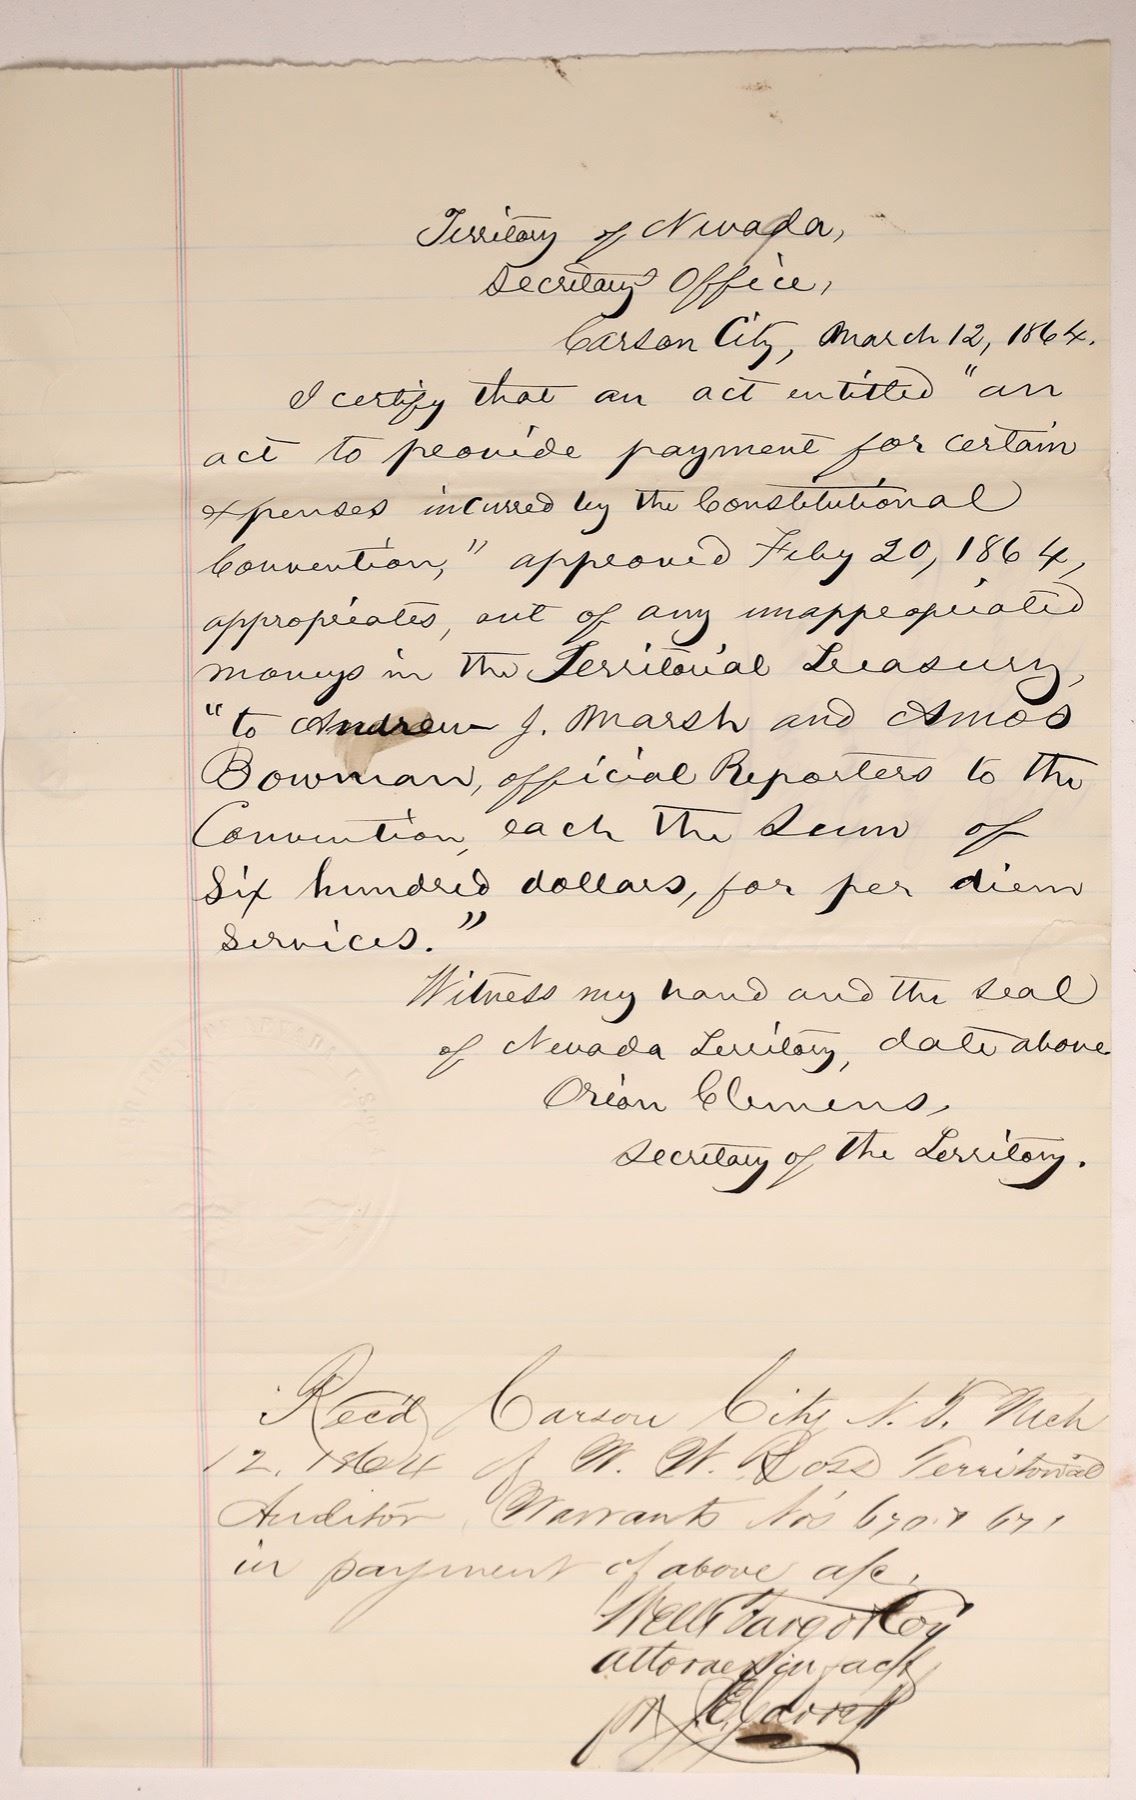 Territory of Nevada,
Secretary's Office,
Carson City, March 12, 1864.
I certify that an act entitled "an
act to provide payment for certain
expenses incurred by the Constitutional
Convention," approved Feby 20, 1864,
appropriates, out of any unappropriated
moneys in the Territorial Treasury,
"to Andrew J. Marsh and Amos
Bowman, official Reporters to the
Convention, each the sum of
Six hundred dollars, for per diem
services."
Witness my hand and the seal
of Nevada Territory, date above
Orion Clemens,
Secretary of the Territory.
Rec'd Carson City N. T. Mch
12. 1864 of W. W. Ross Territorial
Auditor Warrants No's 670 & 671
in payment of above a/c.
Wells Fargo & Co
attorney in fact
pr